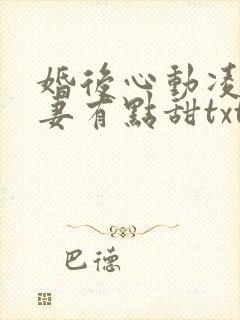 婚後心動凌
妻有點甜txt
巴德